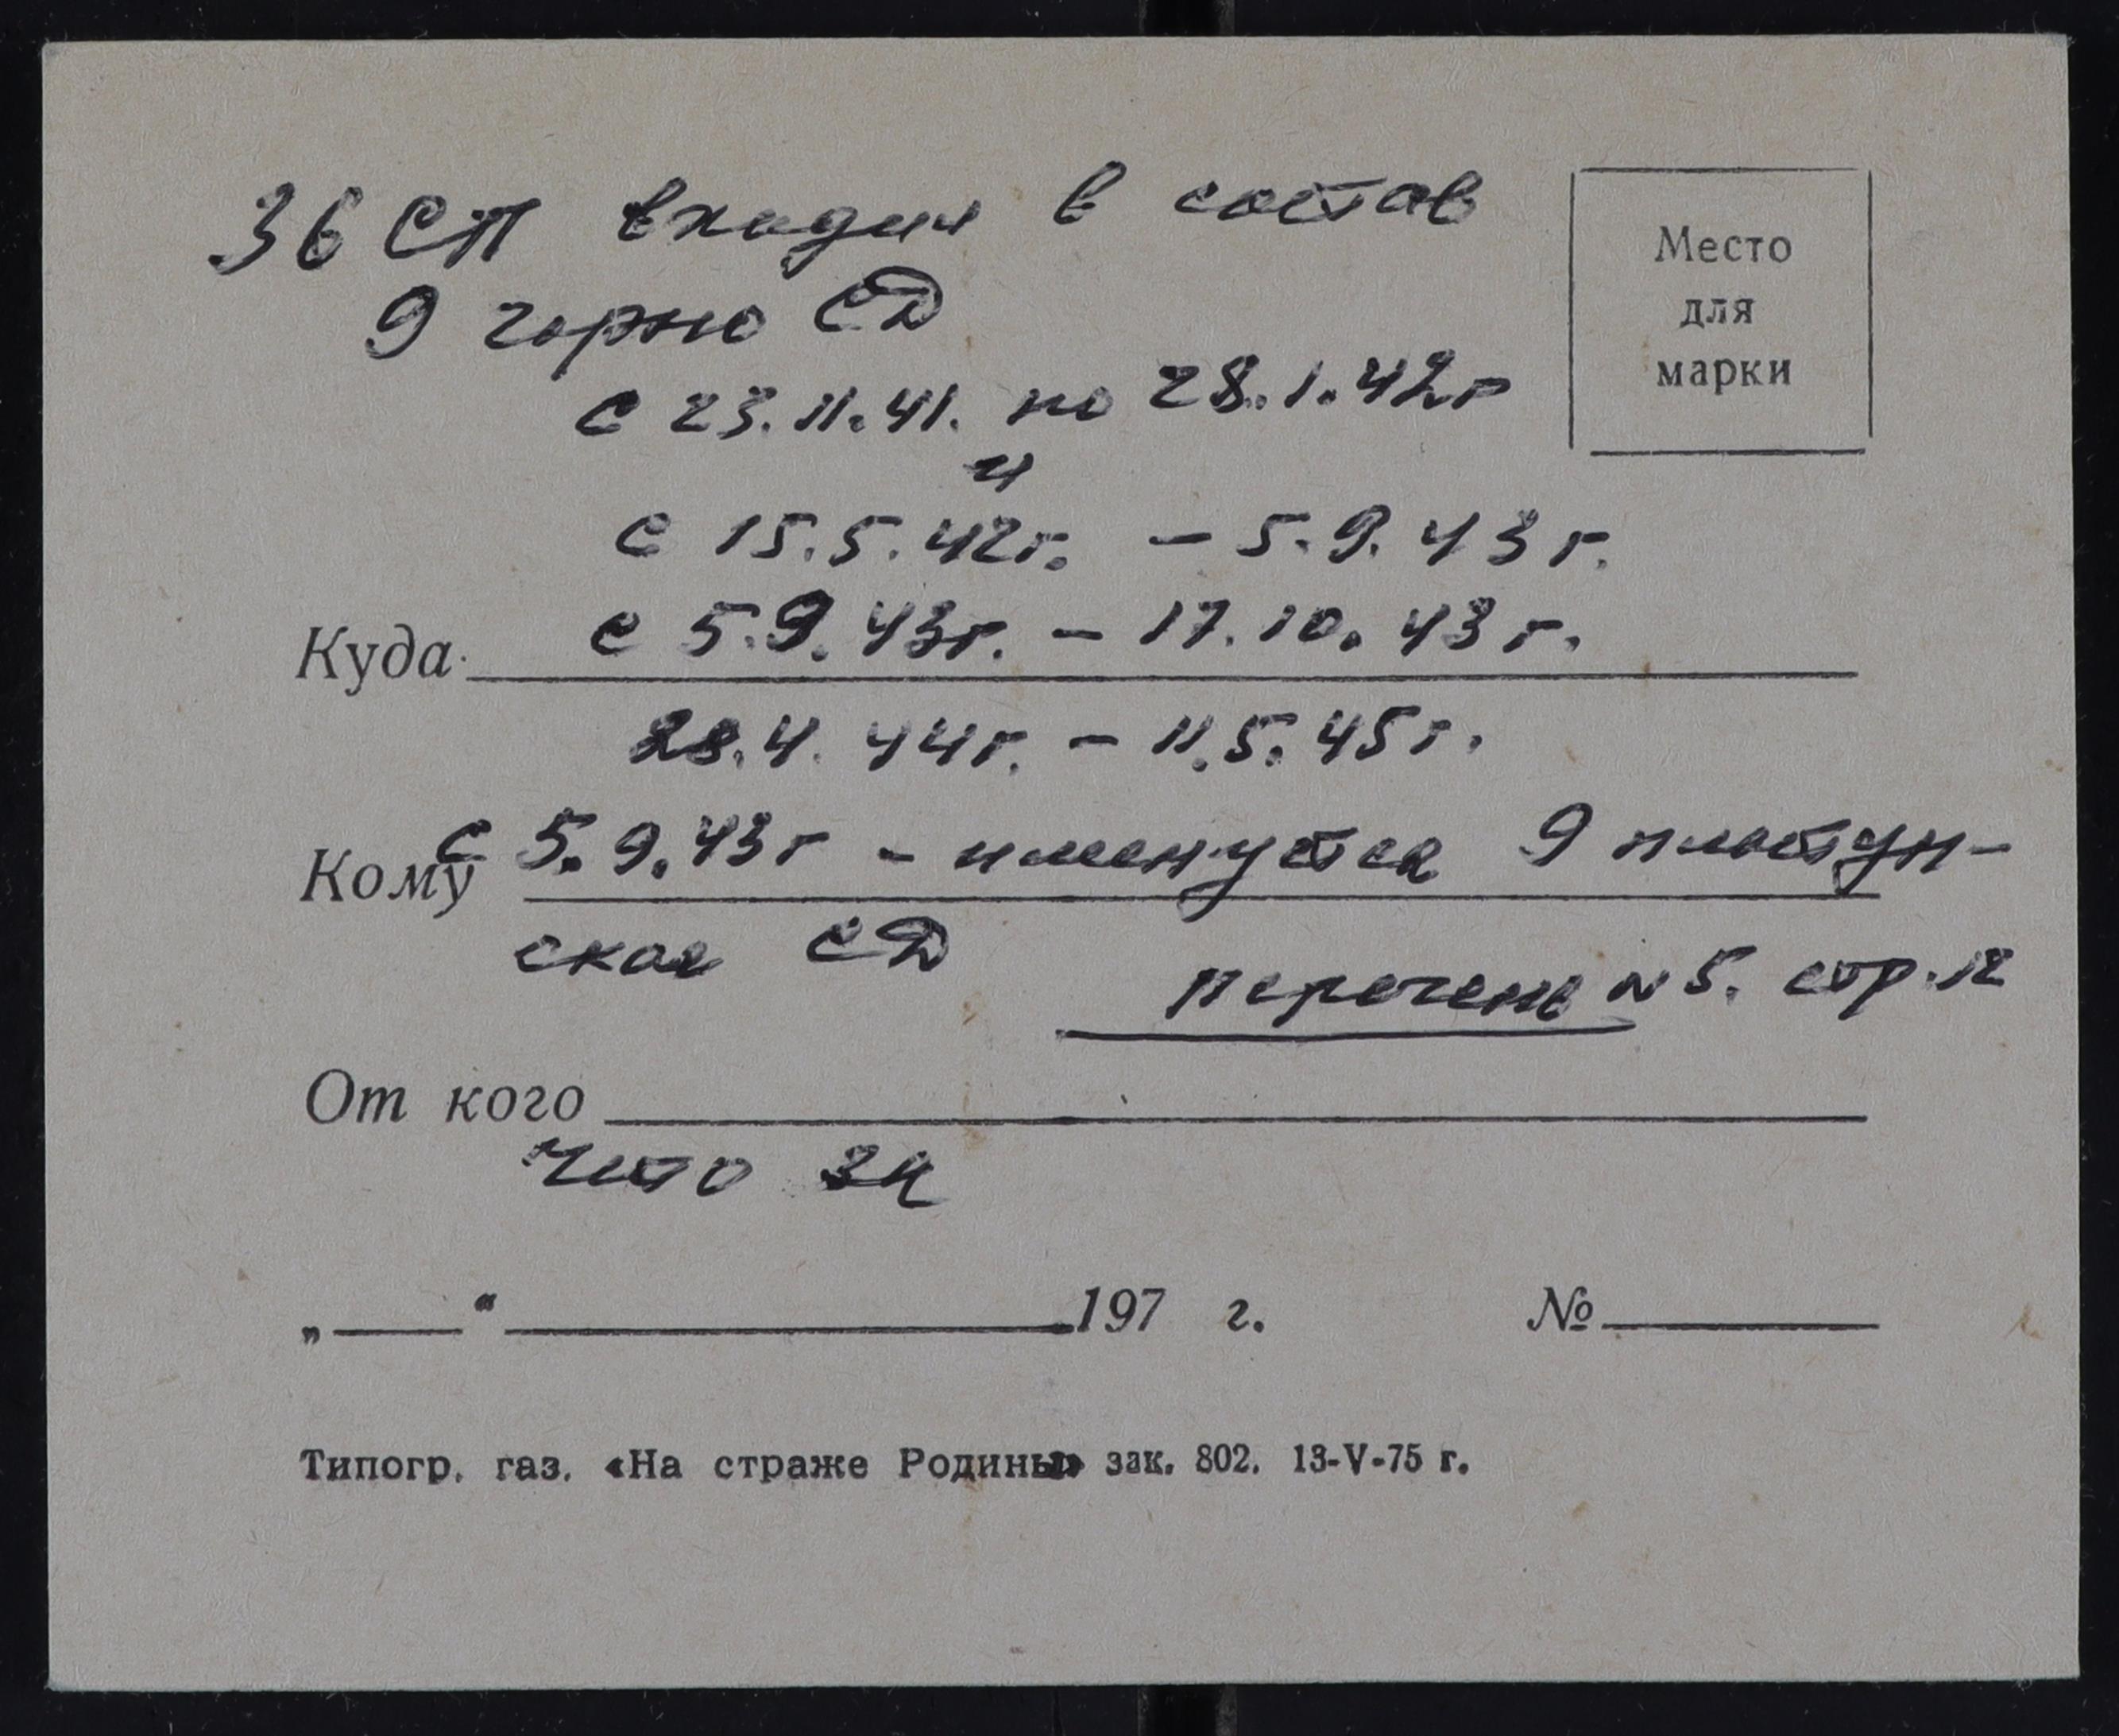 36 СП входил в состав
9 горно СД
с 23.11.41. по 28.1.42г
и
с 15.5.42г. – 5.9.43г.
с 5.9.43г. – 17.10.43г.
28.4.44г. – 11.5.45г.
с 5.9.43г – именуется 9 пластун-
ская СД
перечень № 5. стр. 12
Место
для
марки
Куда
Кому
От кого
„ “ 197 г. №
Типогр. газ. «На страже Родины» зак. 802. 13-V-75 г.